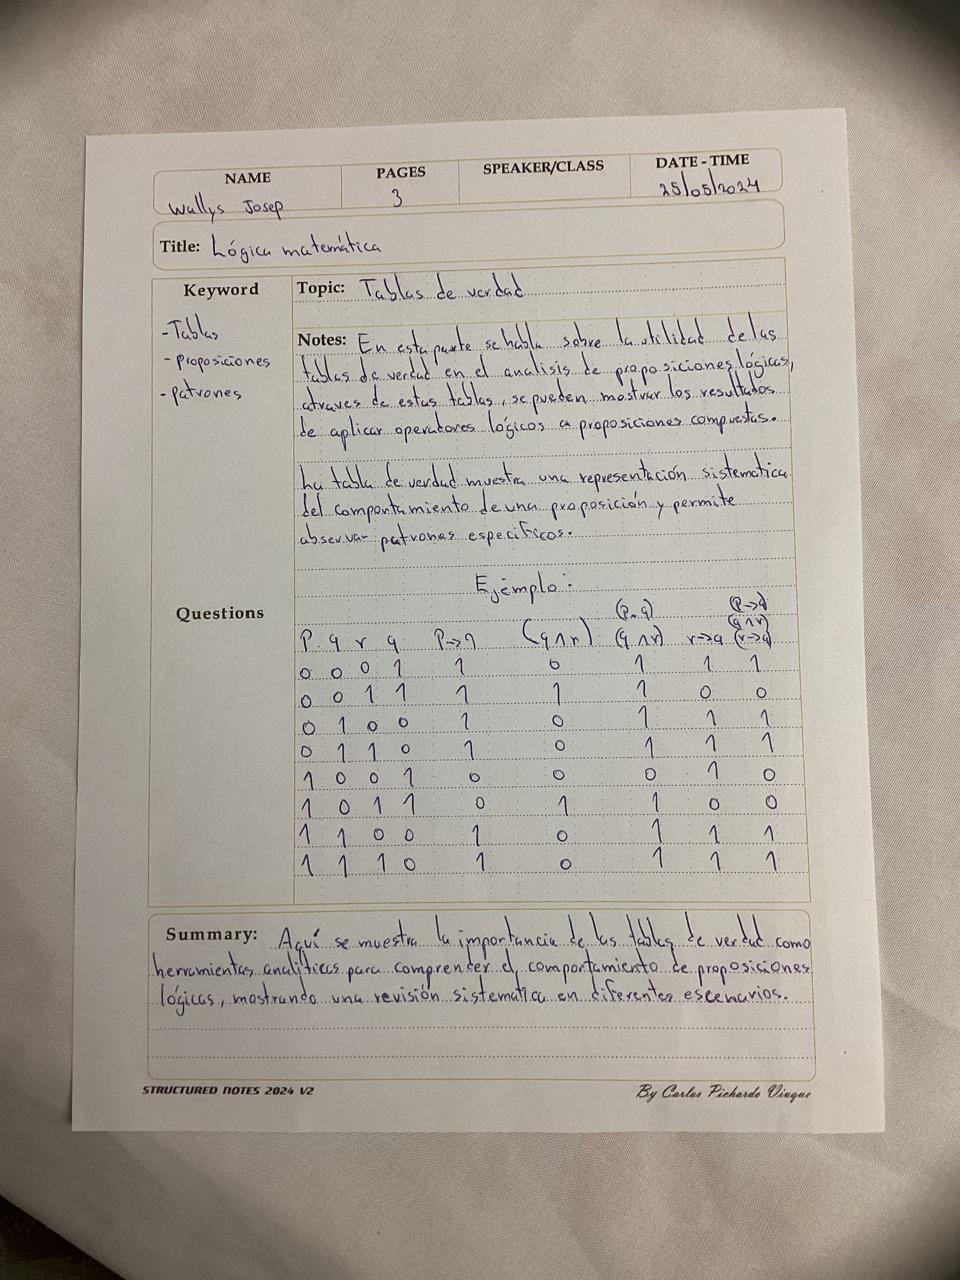 NAME PAGES SPEAKER/CLASS DATE - TIME
Wallys Josep 3 25/05/2024
Title: Lógica matemática
Keyword
- Tablas
- proposiciones
- patrones
Topic: Tablas de verdad
Notes: En esta parte se habla sobre la utilidad de las
tablas de verdad en el analisis de proposiciones lógicas,
atraves de estas tablas, se pueden mostrar los resultados
de aplicar operadores lógicos a proposiciones compuestas.
La tabla de verdad muestra una representación sistematica
del comportamiento de una proposición y permite
observar patrones especificos.
Ejemplo:
Questions
(p→q)
(p→q) (q∧r)
P q r q P→q (q∧r) (q∧r) r→q (r→q)
0 0 0 1 1 0 1 1 1
0 0 1 1 1 1 1 0 0
0 1 0 0 1 0 1 1 1
0 1 1 0 1 0 1 1 1
1 0 0 1 0 0 0 1 0
1 0 1 1 0 1 1 0 0
1 1 0 0 1 0 1 1 1
1 1 1 0 1 0 1 1 1
Summary: Aquí se muestra la importancia de las tablas de verdad como
herramientas analíticas para comprender el comportamiento de proposiciones
lógicas, mostrando una revisión sistematica en diferentes escenarios.
STRUCTURED NOTES 2024 V2 By Carlos Pichardo Viuque